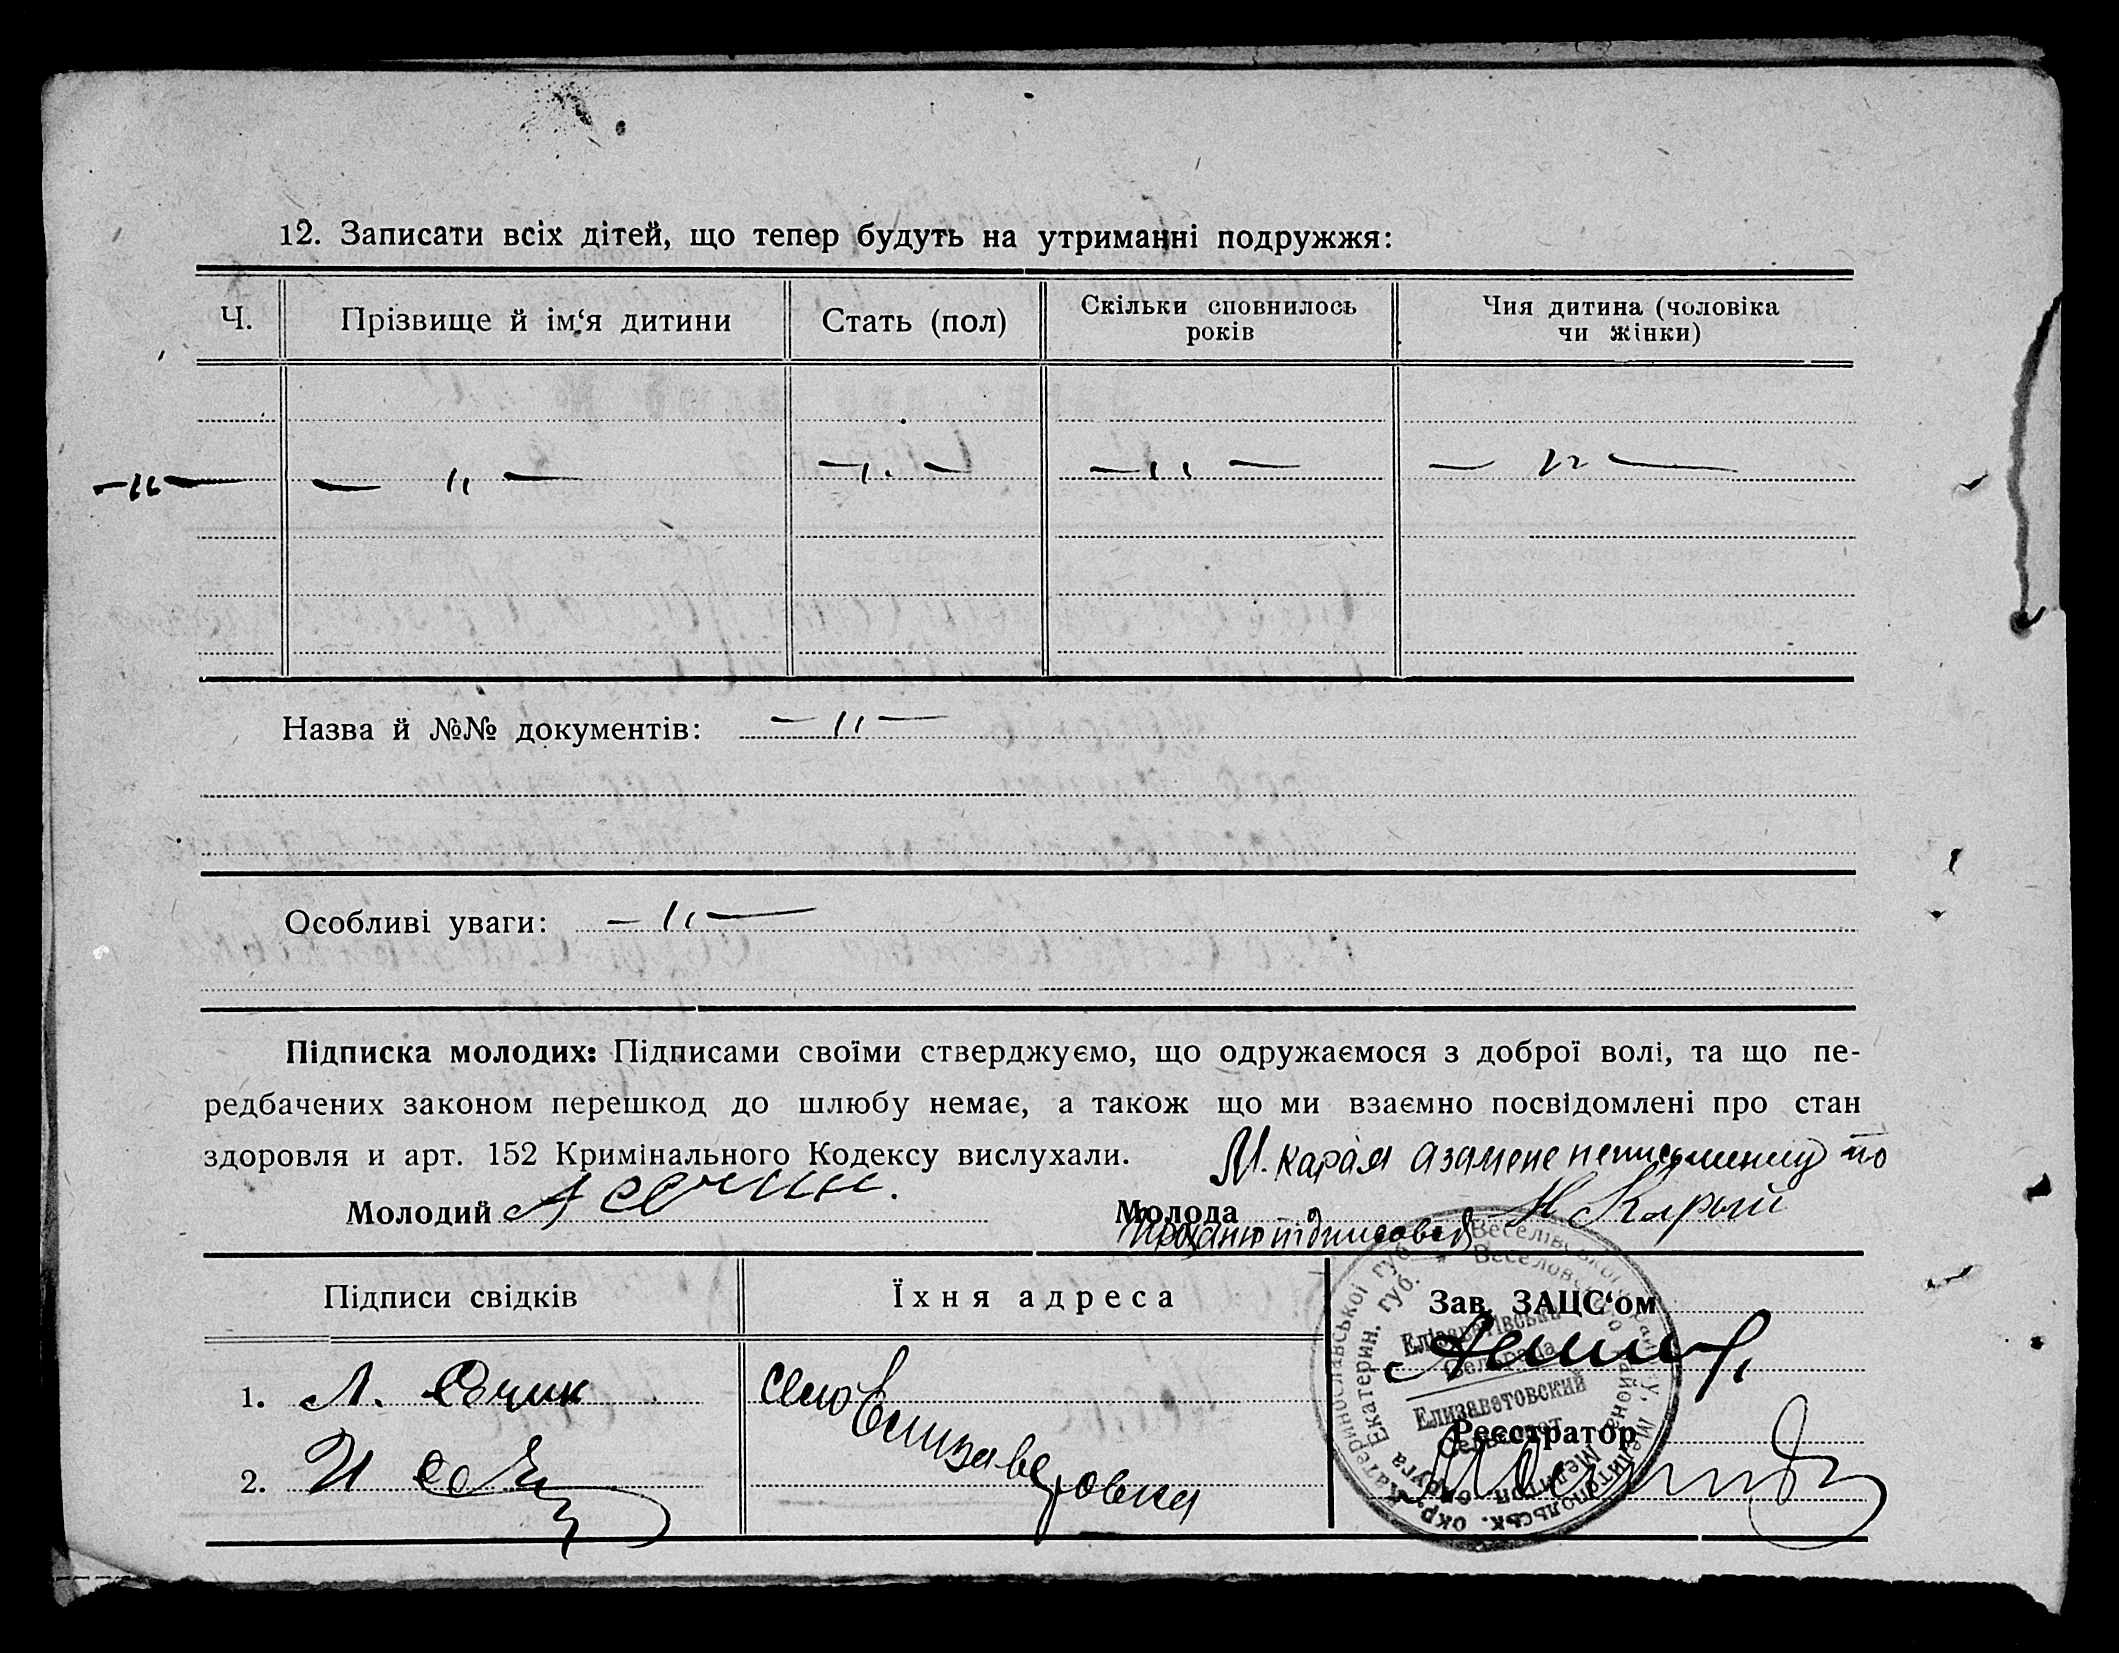 12. Записати всіх дітей, що тепер будуть на утриманні подружжя:
Ч. Прізвище й ім‘я дитини Стать (пол) Скільки сповнилось років Чия дитина (чоловіка чи жінки)
—"— —"— —"— —"— —"—
Назва й №№ документів: —"—
Особливі уваги: —"—
Підписка молодих: Підписами своїми стверджуємо, що одружаємося з доброї волі, та що пе-
редбачених законом перешкод до шлюбу немає, а також що ми взаємно посвідомлені про стан
здоровля и арт. 152 Кримінального Кодексу вислухали.
М. Карая а замене неписьменну по
Молодий
Молода Н Карый
Підписи свідків Їхня адреса Зав. ЗАЦС‘ом
1. Л. село Елизаветовка
Реєстратор
2. И
Катеринославської губ. * Веселівського району, Мелітопольськ. окр.
Екатерин. губ. * Веселовского района Мелитоп округа
Елізаветівська
Сельрада
Елизаветовский
Сельсовет